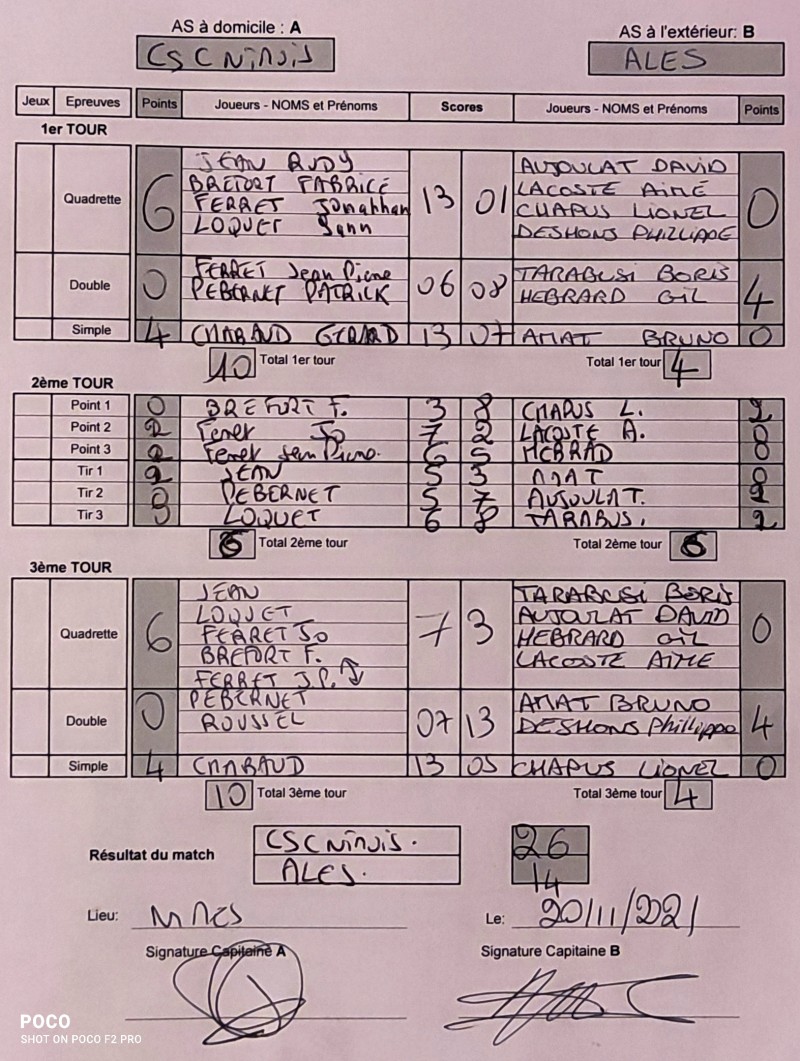 AS à domicile : A AS à l'extérieur: B
CSC Nîmois ALES
Jeux Epreuves Points Joueurs - NOMS et Prénoms Scores Joueurs - NOMS et Prénoms Points
1er TOUR
Quadrette 6 13 01 0
JEAN RUDY AUJOULAT DAVID
BREFORT FABRICE LACOSTE AIMÉ
FERRET Jonathan CHAPUS LIONEL
LOQUET Yann DESHONS PHILLIPPE
Double 0 06 08 4
FERRET Jean Pierre TARABUSI BORIS
PEBERNET PATRICK HEBRARD GIL
Simple 4 CHABAUD GERARD 13 07 AMAT BRUNO 0
10 Total 1er tour Total 1er tour 4
2ème TOUR
Point 1 0 BREFORT F. 3 8 CHAPUS L. 2
Point 2 2 Ferret Jo 7 2 LACOSTE A. 0
Point 3 2 Ferret Jean Pierre. 6 5 HEBRAD 0
Tir 1 2 JEAN 5 3 AMAT 0
Tir 2 0 PEBERNET 5 7 AUJOULAT. 2
Tir 3 0 LOQUET 6 8 TARABUS. 2
6 Total 2ème tour Total 2ème tour 6
3ème TOUR
Quadrette 6 7 3 0
JEAN TARABUSI BORIS
LOQUET AUJOULAT DAVID
FERRET JO HEBRARD GIL
BREFORT F. LACOSTE AIME
FERRET J.P.
Double 0 07 13 4
PEBERNET AMAT BRUNO
ROUSSEL DESHONS Phillippe
Simple 4 CHABAUD 13 05 CHAPUS LIONEL 0
10 Total 3ème tour Total 3ème tour 4
Résultat du match
CSC Nîmois. 26
ALES. 14
Lieu: NIMES Le: 20/11/2021
Signature Capitaine A Signature Capitaine B
POCO
SHOT ON POCO F2 PRO